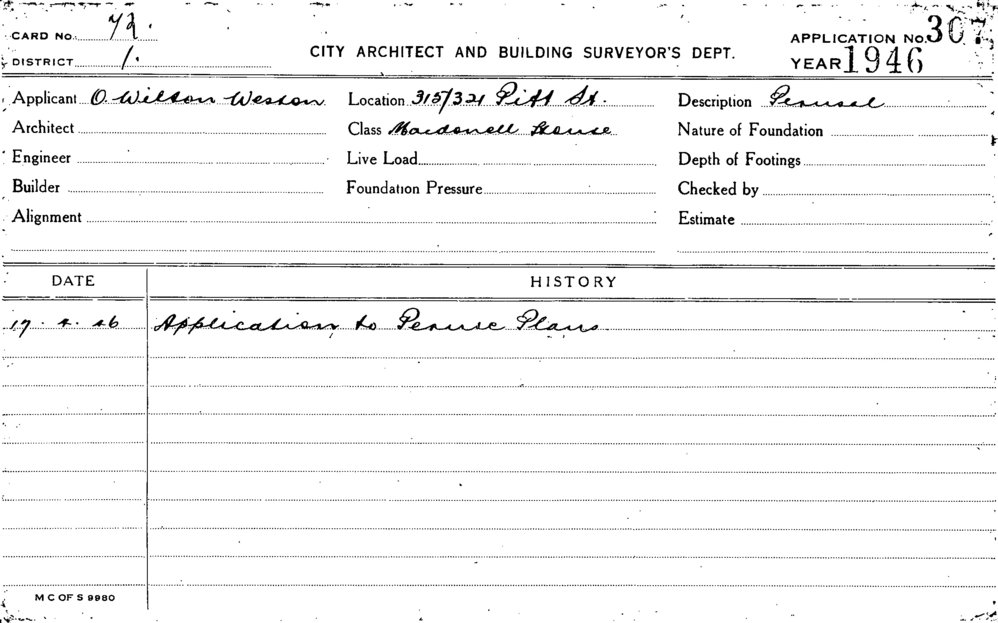 CARD No. 72.
APPLICATION No. 307
DISTRICT 1.
CITY ARCHITECT AND BUILDING SURVEYOR'S DEPT.
YEAR 1946
Applicant O. Wilson Weston Location 315/321 Pitt St. Description Perusal
Architect Class Macdonell House Nature of Foundation
Engineer Live Load Depth of Footings
Builder Foundation Pressure Checked by
Alignment Estimate
DATE HISTORY
17. 4. 46 Application to Peruse Plans
M C OF S 9980